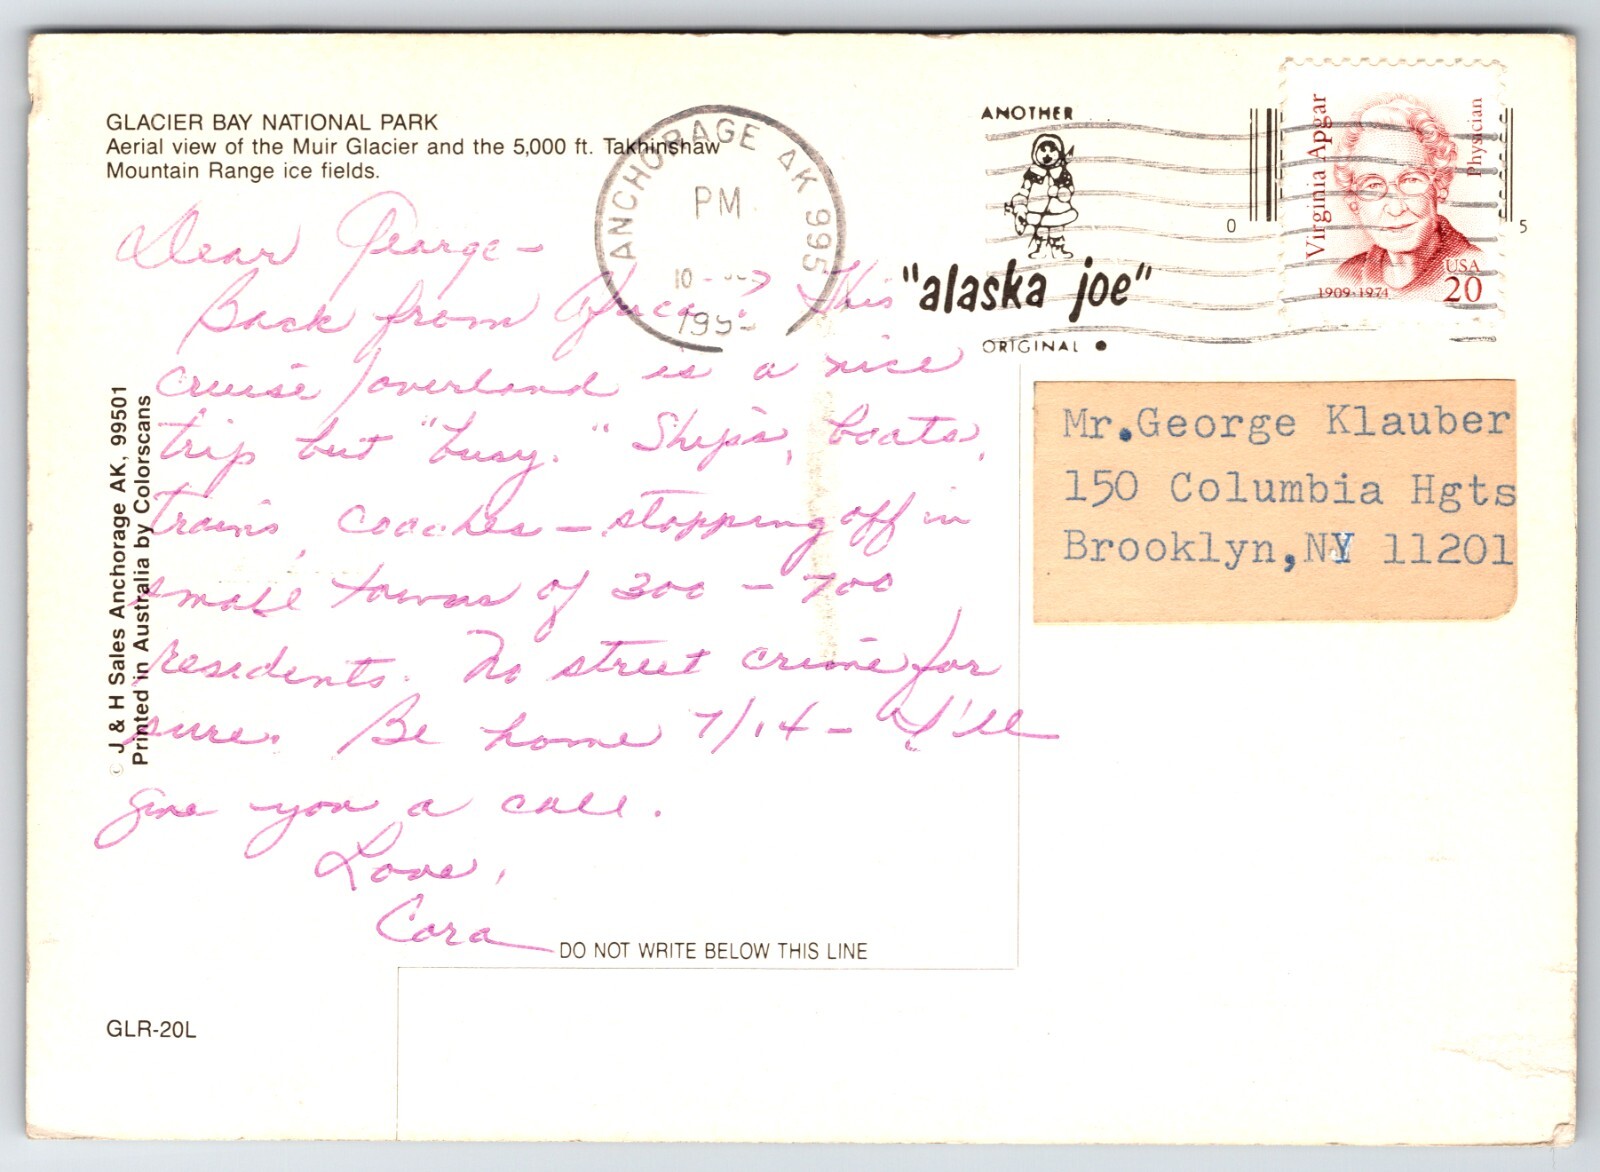 GLACIER BAY NATIONAL PARK
Aerial view of the Muir Glacier and the 5,000 ft. Takhinshaw
Mountain Range ice fields.
Dear George –
Back from Africa. This
cruise/overland is a nice
trip but "busy." Ships, boats,
trains, coaches – stopping off in
small towns of 300 – 700
residents. No street crime for
sure. Be home 7/14 – I'll
give you a call.
Love,
Cora
DO NOT WRITE BELOW THIS LINE
GLR-20L
© J & H Sales Anchorage AK, 99501
Printed in Australia by Colorscans
ANCHORAGE AK 995
PM
10
199
ANOTHER
"alaska joe"
ORIGINAL
0
5
Virginia Apgar
Physician
1909-1974
USA
20
Mr.George Klauber
150 Columbia Hgts
Brooklyn,NY 11201